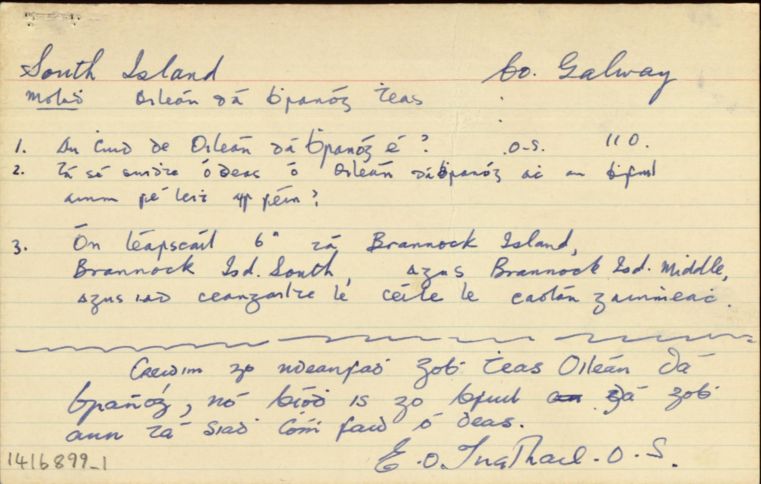 South Island Co. Galway
Molaḋ Oileán dá ḃranóg ṫeas
1. An Cuid de Oileán dá ḃranóg é? O.S. 110.
2. Tá sé suiḋte ó ḋeas ó Oileán dá ḃranóg aċ an ḃfuil
ainm fé leiṫ air féin?
3. Ón léarscáil 6" tá Brannock Island,
Brannock Isd. South, agus Brannock Isd. Middle,
agus iad ceangailte le ċéile le caolán gainimeaċ.
Creidim go ndeanfaḋ gob ṫeas Oileán Dá
ḃranóg, nó bíoḋ is go ḃfuil dá gob
ann tá siad ċóṁ fad ó ḋeas.
O.S.
1416899_1